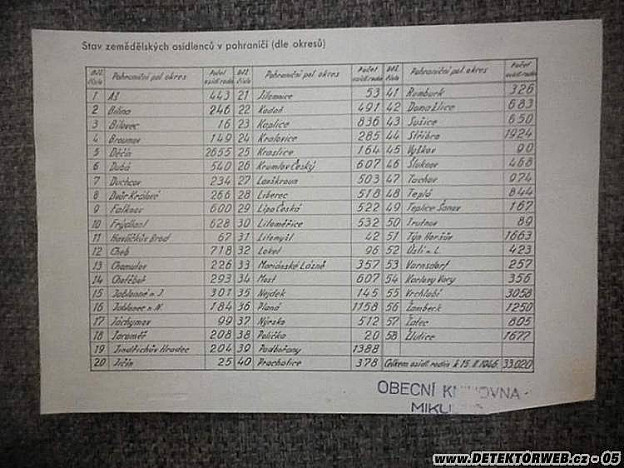 Stav zemědělských osídlenců v pohraničí (dle okresů)
Běž. číslo Pohraniční pol. okres Počet osídl. rodin Běž. číslo Pohraniční pol. okres Počet osídl. rodin Běž. číslo Pohraniční pol. okres Počet osídl. rodin
1 Aš 443 21 Jilemnice 53 41 Rumburk 326
2 Bílina 246 22 Kadaň 491 42 Domažlice 683
3 Bílovec 16 23 Kaplice 836 43 Sušice 650
4 Broumov 149 24 Kralovice 285 44 Stříbro 1924
5 Děčín 2655 25 Kraslice 164 45 Vyškov 90
6 Dubá 540 26 Krumlov Český 607 46 Šluknov 468
7 Duchcov 234 27 Lanškroun 503 47 Tachov 974
8 Dvůr Králové 266 28 Liberec 518 48 Teplá 844
9 Falknov 600 29 Lípa Česká 522 49 Teplice Šanov 167
10 Frýdlant 628 30 Litoměřice 532 50 Trutnov 89
11 Havlíčkův Brod 67 31 Litomyšl 42 51 Týn Horšův 1663
12 Cheb 718 32 Loket 96 52 Ústí n. L. 423
13 Chomutov 226 33 Mariánské Lázně 357 53 Varnsdorf 257
14 Chotěboř 293 34 Most 607 54 Karlovy Vary 356
15 Jablonné n. J 301 35 Nejdek 145 55 Vrchlabí 3058
16 Jablonec n. N. 184 36 Planá 1158 56 Žamberk 1250
17 Jáchymov 99 37 Nýrsko 512 57 Žatec 805
18 Jaroměř 208 38 Polička 20 58 Žlutice 1677
19 Jindřichův Hradec 204 39 Podbořany 1388
20 Jičín 25 40 Prachatice 378 Celkem osídl. rodin k 15. II. 1946 33.020
OBECNÍ KNIHOVNA
www.DETEKTORWEB.cz - 05